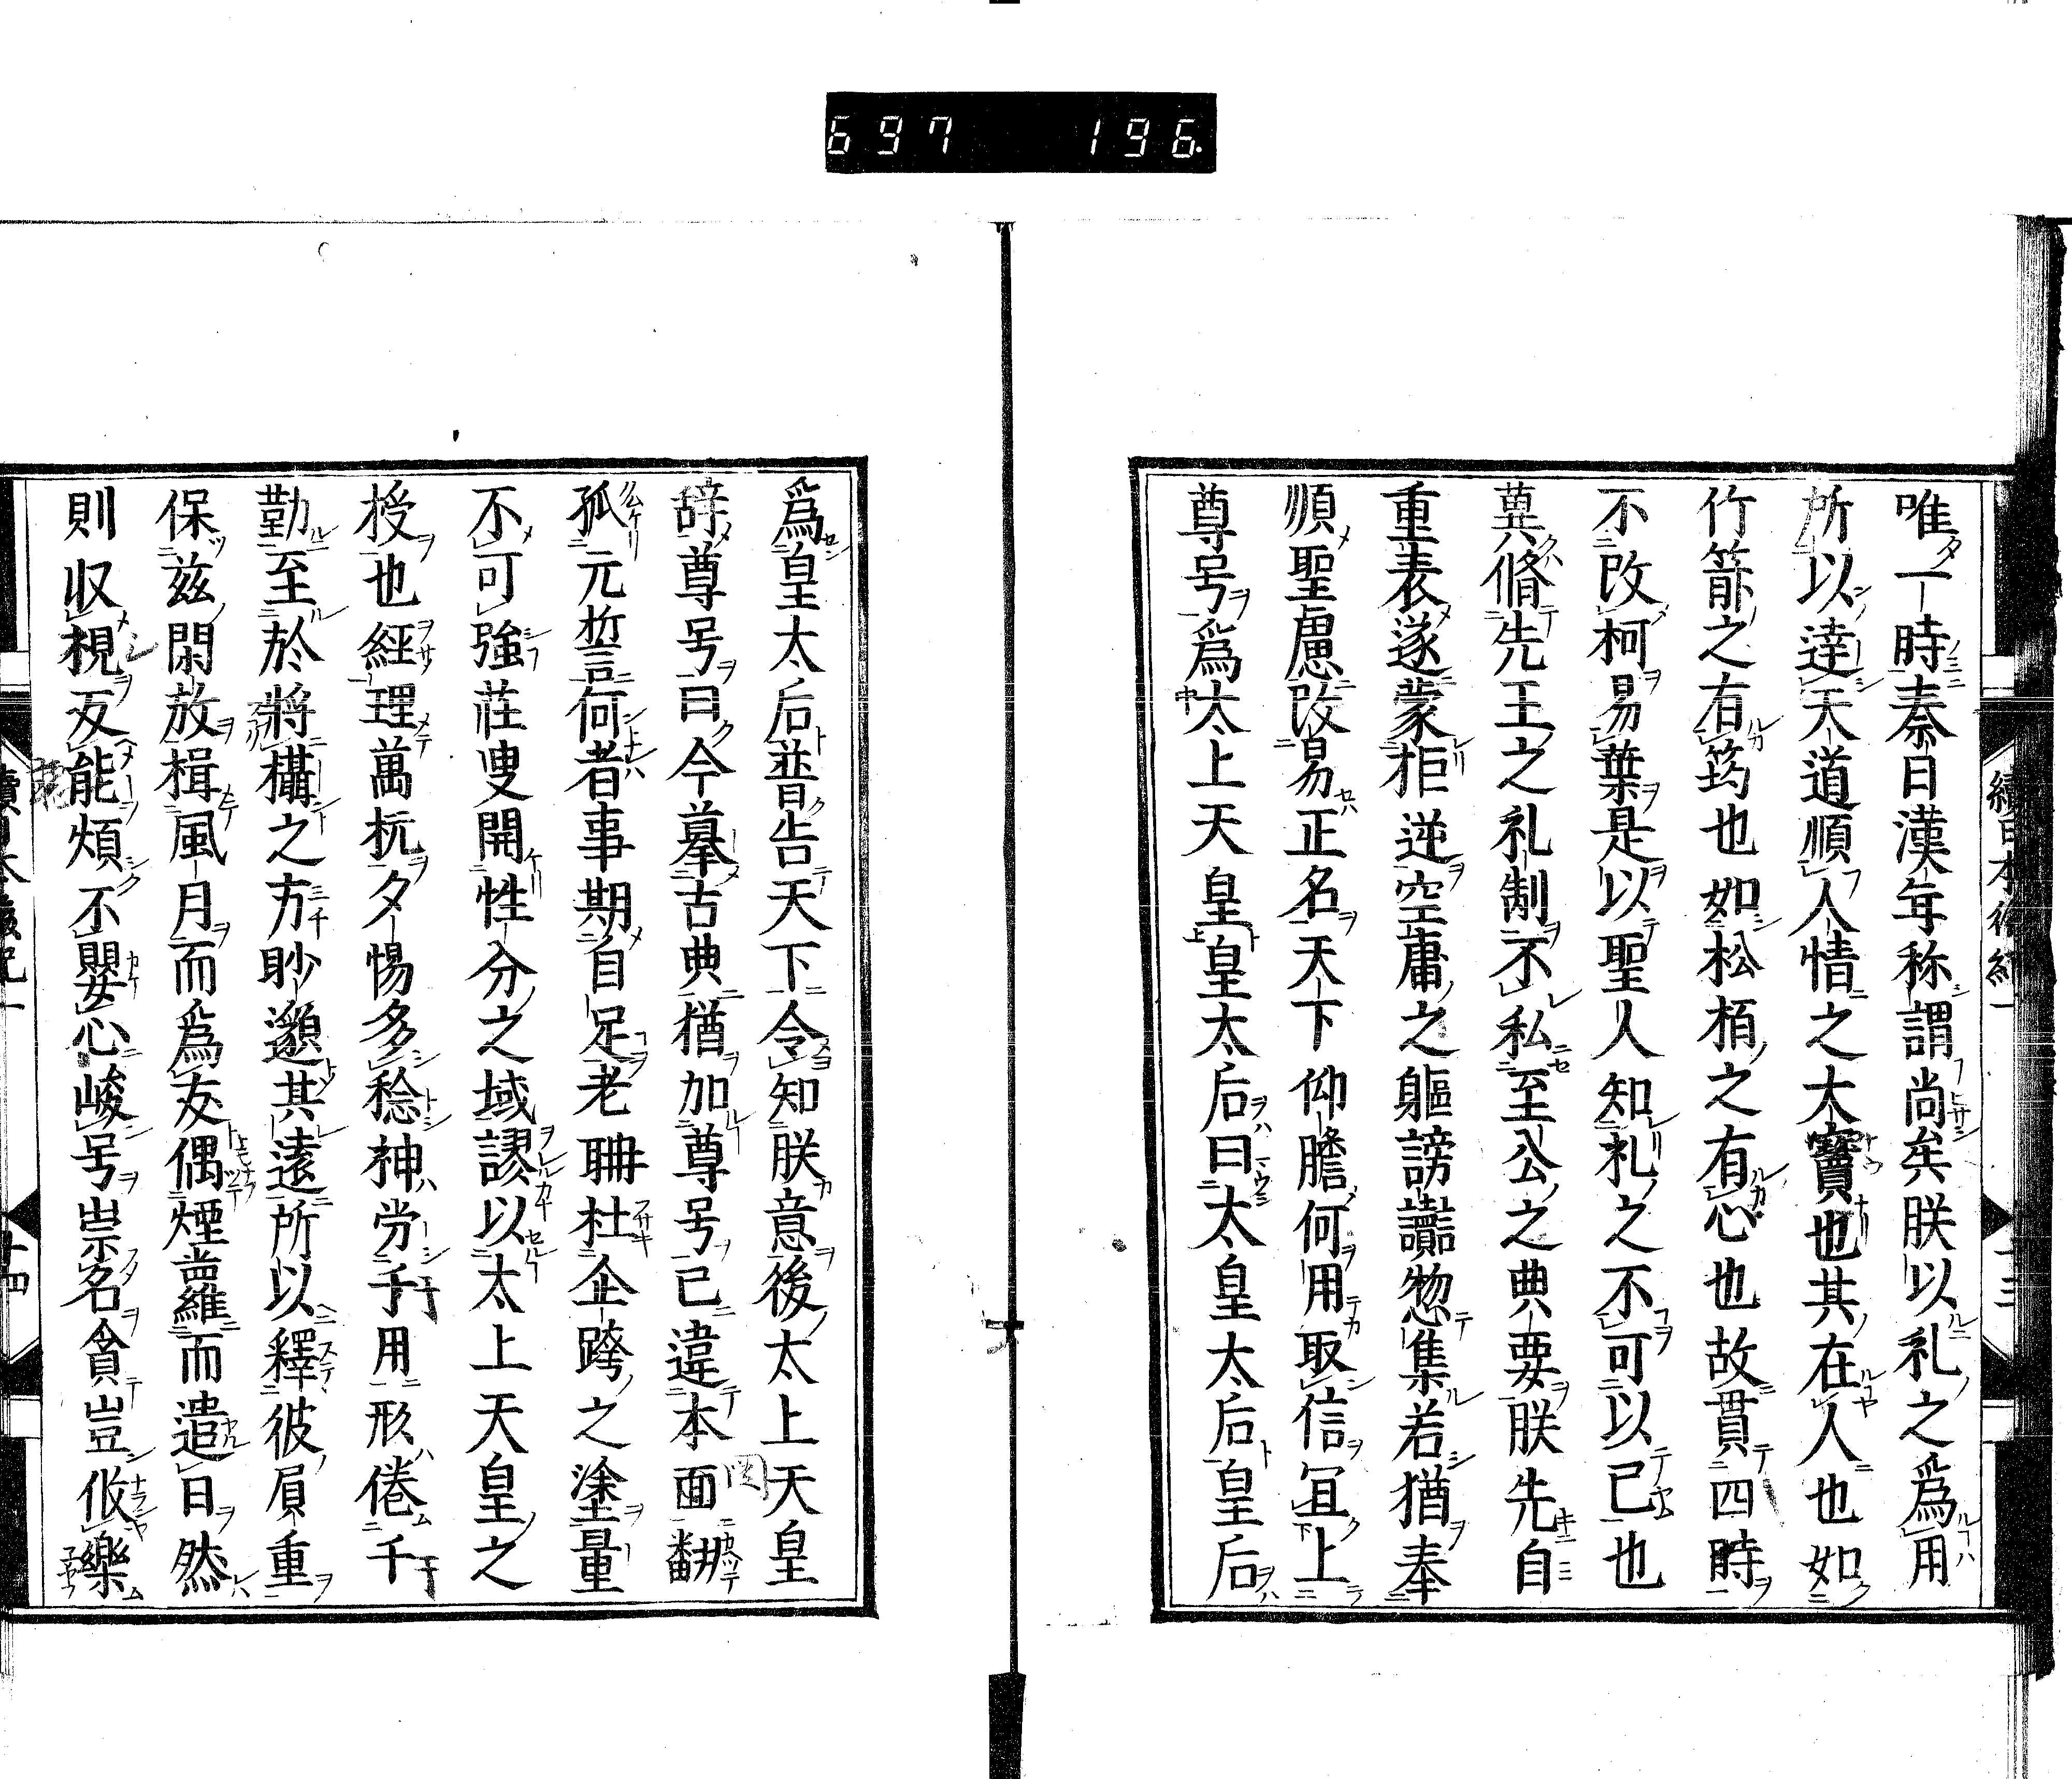 697 196
唯一時秦日漢年称謂尚矣朕以礼之爲用
所以達天道順人情之大寶也其在人也如
竹箭之有筠也如松栢之有心也故貫四時
不改柯易葉是以聖人知礼之不可以已也
冀脩先王之礼制不私至公之典要朕先自
重表遂蒙拒逆空庸之軀謗讟惣集若猶奉
順聖慮改易正名天下仰瞻何用取信冝上
尊号爲太上天皇皇太后曰太皇太后皇后
爲皇太后普告天下令知朕意後太上天皇
辞尊号曰今摹古典猶加尊号已違本面翻
孤元誓何者事期自足老聃杜企跨之塗量
不可強莊叟開性分之域謬以太上天皇之
授也經理萬机夕惕多稔神労手用形倦千
勤至於將攝之方眇邈其遠所以釋彼屓重
保茲閑放楫風月而爲友偶煙蘿而遣日然
則収視友能煩不嬰心峻号崇名貪豈攸樂